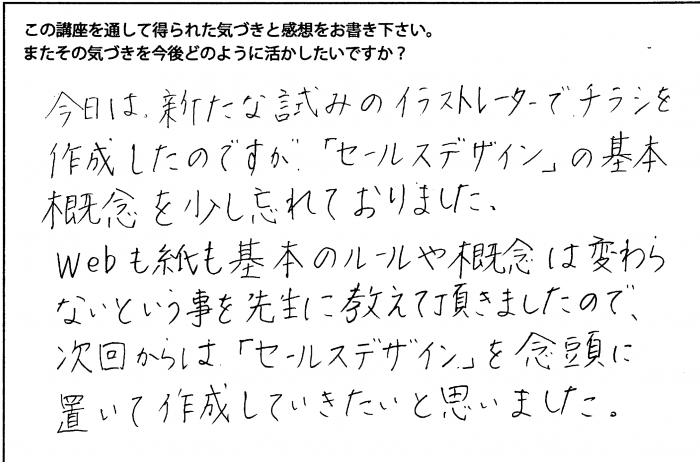 この講座を通して得られた気づきと感想をお書き下さい。
またその気づきを今後どのように活かしたいですか？
今日は、新たな試みのイラストレーターでチラシを
作成したのですが、「セールスデザイン」の基本
概念を少し忘れておりました、
Webも紙も基本のルールや概念は変わら
ないという事を先生に教えて頂きましたので、
次回からは、「セールスデザイン」を念頭に
置いて作成していきたいと思いました。